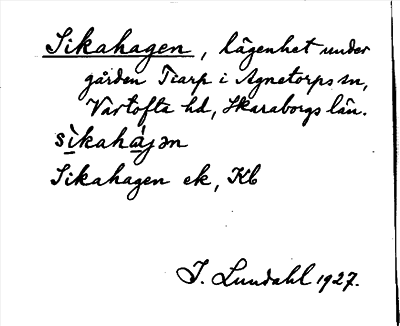 Sikahagen, lägenhet under
gården Tiarp i Agnetorps sn,
Vartofta hd, Skaraborgs län.
sìkaháɟən
Sikahagen ek, Kb
J. Lundahl 1927.